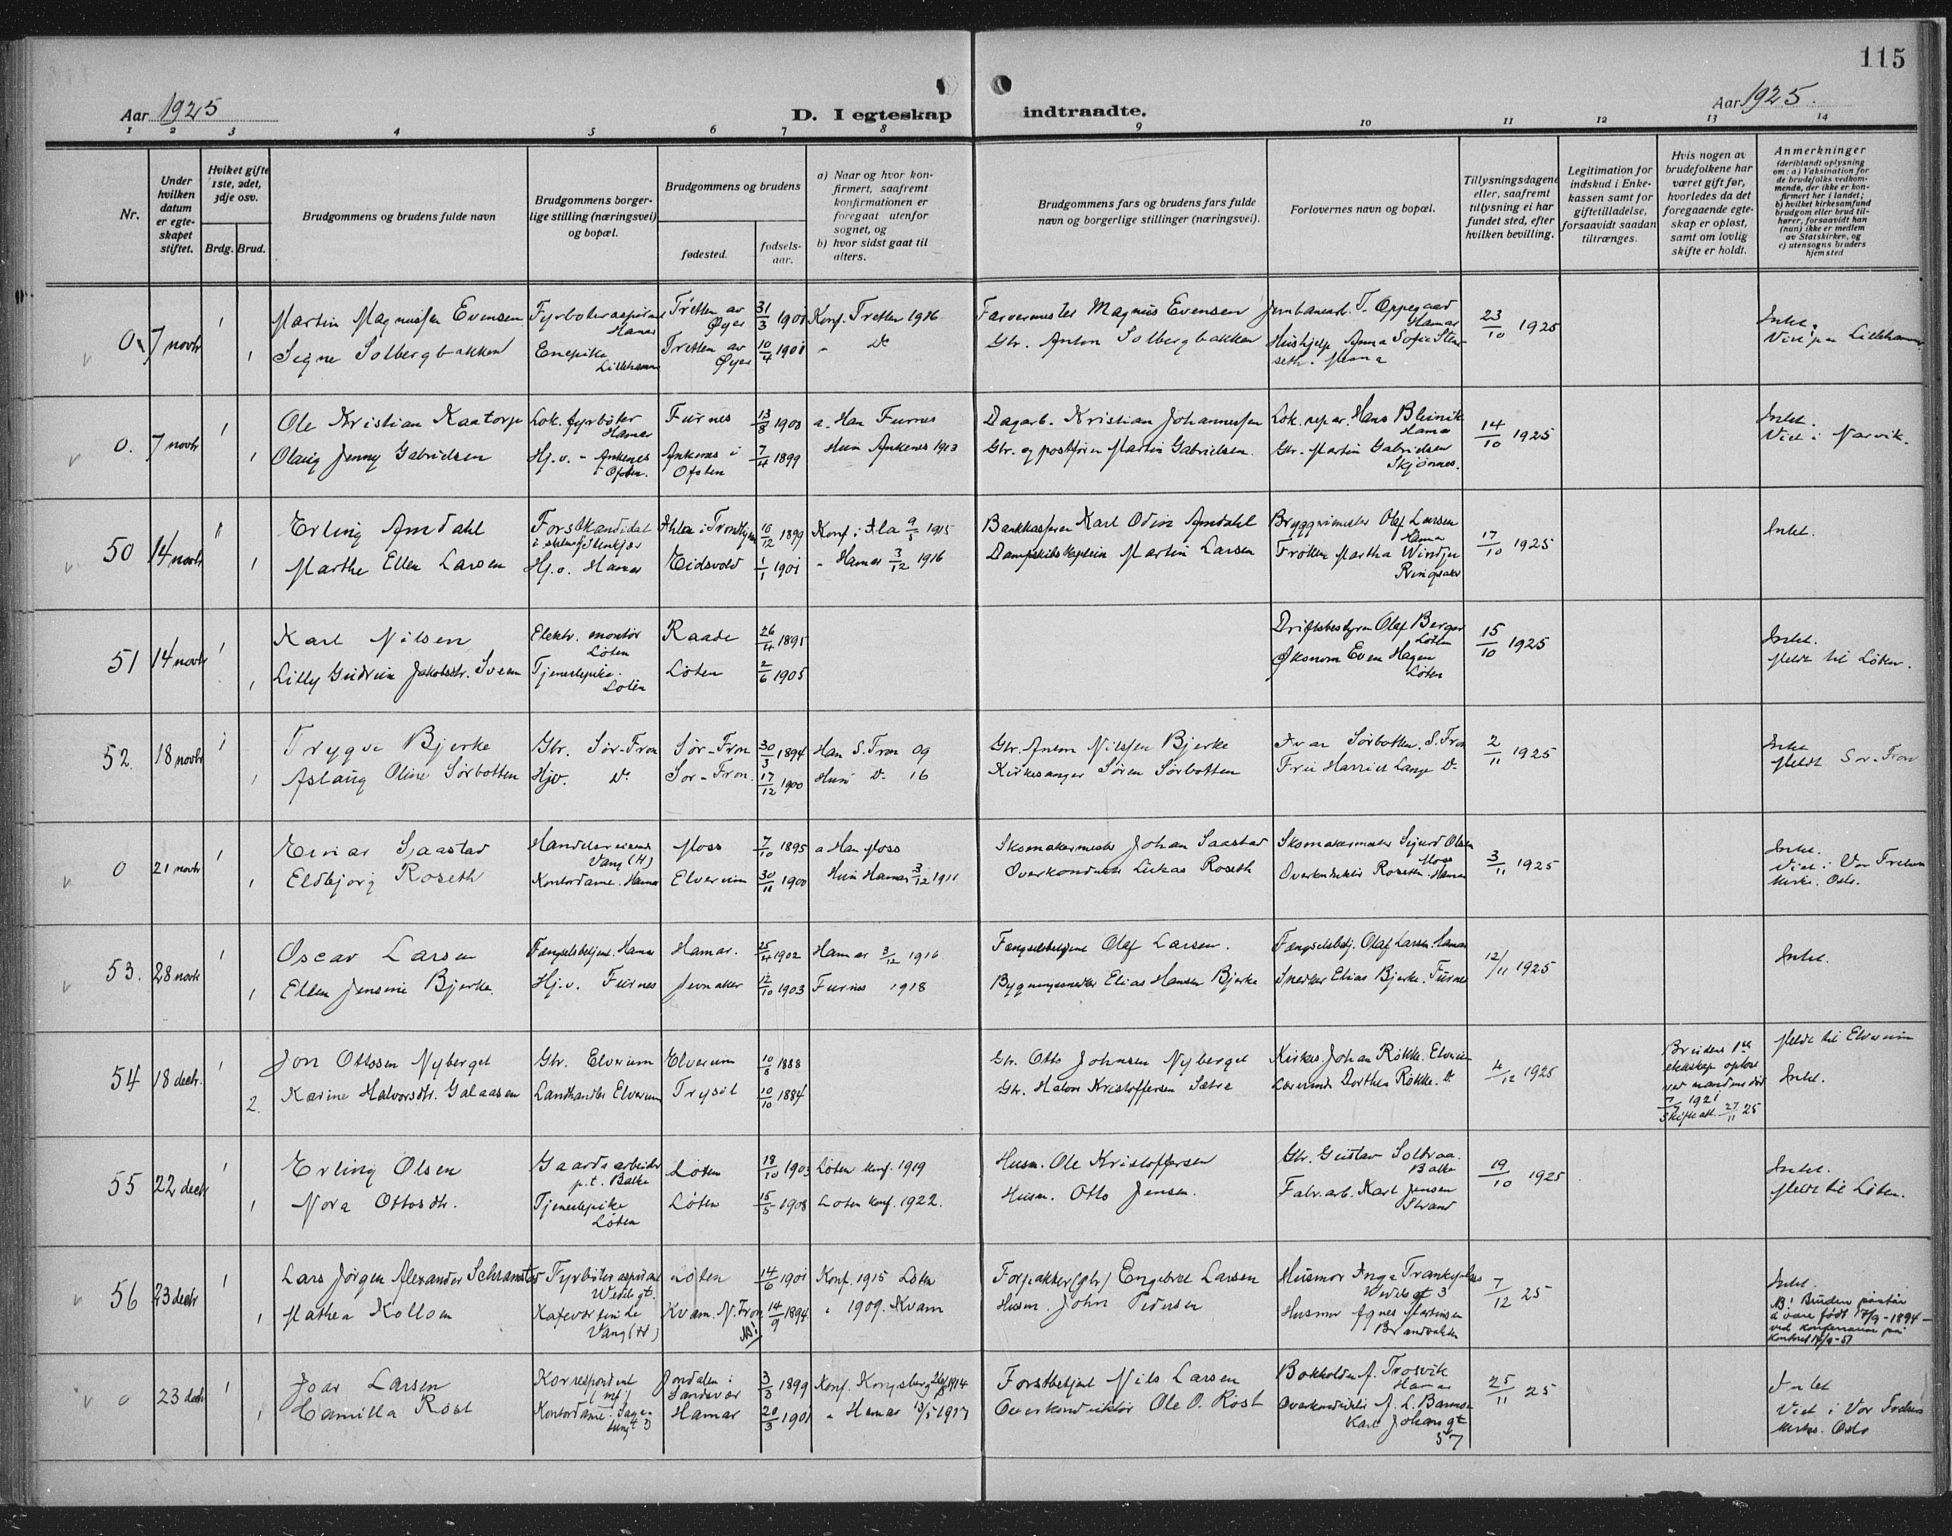 115
Aar 1925
D. I egteskap indtraadte.
Aar 1925.
1 2 3 4 5 6 7 8 9 10 11 12 13 14
Nr.
Under hvilken datum er egteskapet stiftet.
Hviket gifte 1ste, 2det, 3dje osv.
Brdg. Brud.
Brudgommens og brudens fulde navn
Brudgommens borgerlige stilling (næringsvei) og bopæl.
Brudgommens og brudens
fødested.
fødselsaar.
a) Naar og hvor konfirmert, saafremt konfirmationen er foregaat utenfor sognet, og
b) hvor sidst gaat til alters.
Brudgommens fars og brudens fars fulde navn og borgerlige stillinger (næringsvei).
Forlovernes navn og bopæl.
Tillysningsdagene eller, saafremt tillysning ei har fundet sted, efter hvilken bevilling.
Legitimation for indskud i Enkekassen samt for giftetilladelse, forsaavidt saadan tiltrænges.
Hvis nogen av brudefolkene har været gift før, hvorledes da det foregaaende egteskap er opløst, samt om lovlig skifte er holdt.
Anmerkninger
(deriblandt oplysning om: a) Vaksination for de brudefolks vedkommende, der ikke er konfirmert her i landet; b) hvilket kirkesamfund brudgom eller brud tilhører, forsaavidt han (hun) ikke er medlem av Statskirken, og c) utensogns bruders hjemsted
0 7 novbr 1 Martin Magnussen Evensen Fyrbøteraspirant Hamar Tretten av Øyer 31/3 1901 Konf. Tretten 1916 Farvermester Magnus Evensen Jernbanearb. T. Oppegaard Hamar 23/10 1925 Intet.
1 Signe Solbergbakken Enepike Lillehammer Tretten av Øyer 10/4 1901 " Do Gbr. Anton Solbergbakken Hushjelp Anna Sofie Hamar Viet paa Lillehammer
0. 7 novbr 1 Ole Kristian Kaatorp Lok. fyrbøter Hamar Furnes 13/8 1903 a. Han Furnes Dagarb. Kristian Johannessen Lok. rep. ar. Hans Hamar 14/10 1925 Intet.
1 Olaug Jenny Gabrielsen Hj.v. - Ankenes i Ofoten. Ankenes i Ofoten 7/4 1899 Hun Ankenes 1913 Gbr. og postfører Martin Gabrielsen. Gbr. Martin Gabrielsen Skjomnes. Viet i Narvik.
50 14 novbr 1 Erling Amdahl Forstkandidat Steinkjær i Trondhjem 16/12 1899 Konf. i Ila 1915 Bankkasserer Karl Odin Amdahl Bryggerimester Olaf Larsen Hamar 17/10 1925 Intet.
1 Marthe Ellen Larsen Hj.v. Hamar Eidsvold 1/1 1901 " Hamar 3/12 1916 Dampskibskaptein Martin Larsen Frøken Martha Windju Ringsaker
51 14 novbr 1 Karl Nilsen Elektr. montør Løten Raade 26/4 1895 Driftsbestyrer Olaf Berger Løten 15/10 1925 Intet.
1 Lilly Gudrun Jakobsdtr. Sveen Tjenestepike. Løten Løten 2/6 1905 Økonom Even Hagen Løten Meldt til Løten.
52. 18 novbr 1 Trygve Bjerke Gbr. Sør-Fron Sør-Fron 30/3 1894 Han S. Fron 09 Gbr. Anton Nilssen Bjerke Ivar Sørbotten. S. Fron 2/11 1925 Intet
1 Aslaug Oline Sørbotten Hjv. Do Sør-Fron. 17/12 1900 Hun Do 16 Kirkesanger Søren Sørbotten Fru Harriet Lange Do Meldt Sør-Fron
0 21 novbr 1 Einar Saastad Handelsreisende Vang (H) Moss 7/10 1895 a Han Moss Skomakermester Johan Saastad Skomakermester Sigurd Olsen Moss 3/11 1925 Intet.
1 Eldbjørg Roseth Kontordame. Hamar Elverum 30/11 1900 Hun Hamar 3/12 1911 Overkonduktør Lukas Roseth Overkonduktør Roseth. Hamar Viet i Vor Frelsers kirke. Oslo.
53. 28 novbr 1 Oscar Larsen Fængselsbetjent. Hamar Hamar. 25/4 1902 Hamar 3/12 1916 Fængselsbetjent Olaf Larsen. Fængselsbetj. Olaf Larsen. Hamar 12/11 1925 Intet.
1 Ellen Jensine Bjerke. Hj.v. Furnes Jevnaker 12/10 1903 Furnes 1918 Bygningssnedker Elias Hansen Bjerke Snedker Elias Bjerke. Furnes
54 18 decbr. 1 Jon Ottosen Nyberget Gbr. Elverum Elverum 10/8 1888 Gbr. Otto Johnsen Nyberget Kirkes. Johan Røkke. Elverum 4/12 1925 Brudens 1ste ekteskap opløst ved mandens død 1921 Skifteatt. 27/11 25 Meldt til Elverum
2. Karine Halvorsdtr. Galaasen Landhandler Elverum Trysil 10/10 1884 Gbr. Halvor Kristoffersen Sætre Lærerinde Dorthea Røkke. Do Intet.
55 22 decbr 1 Erling Olsen Gaardsarbeider p.t. Balke Løten 18/10 1903 Løten konf. 1919 Husm. Ole Kristoffersen Gbr. Gustav Solbraa. Balke 19/10 1925 Intet.
1 Nora Ottosdtr. Tjenestepike Løten Løten 15/5 1908 Løten konf. 1922. Husm. Otto Jensen. Fabr.arb. Karl Jensen Strand Meldt til Løten.
56 23 decbr 1 Lars Jørgen Alexander Schramstad Fyrbøteraspirant Wedels gt. Løten 14/6 1901 Konf. 1915 Løten Forpakter (gbr) Engebret Larsen Husmor Inga Wedels gt 3 7/12 25 Intet.
1 Mathea Kolloen Kafeværtinde Vang (H) Kvam. N. Fron NB! 14/9 1894 " 1909. Kvam Husm. John Pedersen Husmor Agnes Martinsen Brandvakten NB! Bruden påstår å være født 17/9-1894 - ved konferanse på kontoret 14/9-51
0 23 decbr 1 Joar Larsen Korrespondent Jondalen i Sandsvær 3/3 1899 Konf. Kongsberg 1914 Forstbetjent Nils Larsen Bokholder A. Trosvik Hamar 25/11 25 Intet
1 Camilla Rost Kontordame. Hamar 20/3 1901 " Hamar 13/5 1917 Overkonduktør Ole O. Rost Overkonduktør A. L. Karl Johans gt 57 Viet i Vor Frelsers kirke. Oslo